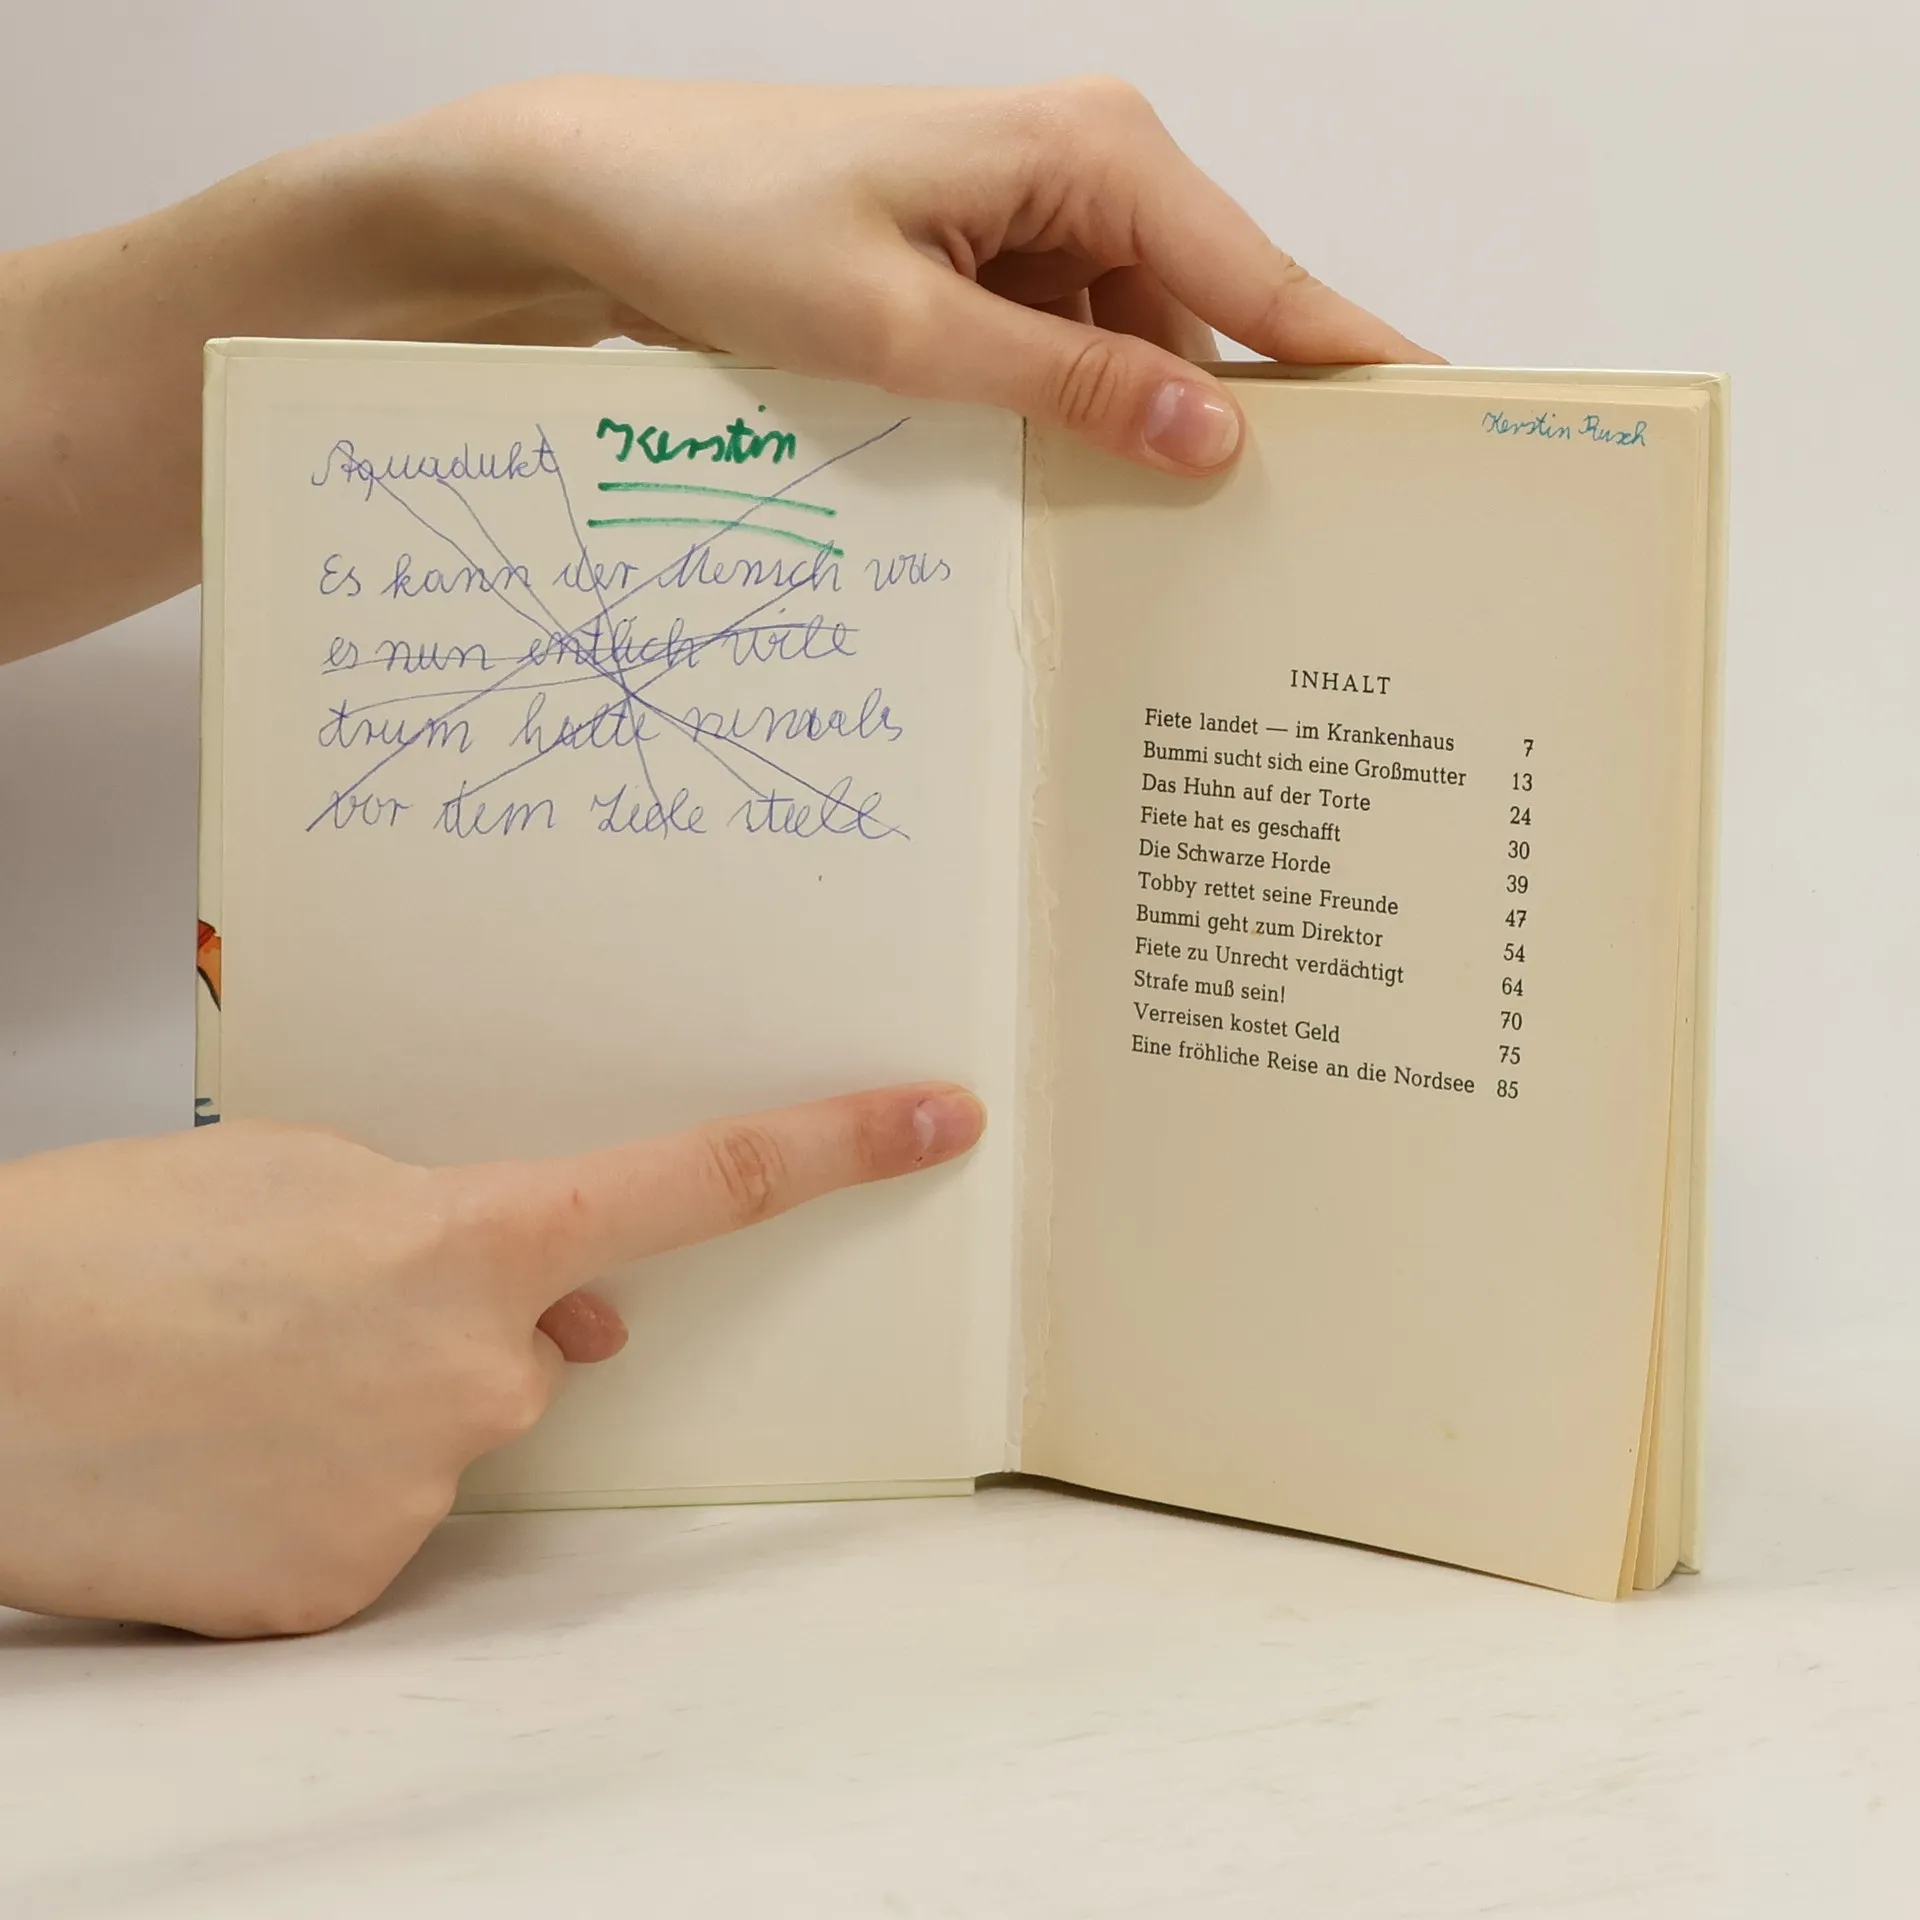 Kerstin
Aquadukt
Es kann der Mensch was
es nun entlich will
drum halte niemals
vor dem Ziele still
Kerstin Rusch
INHALT
Fiete landet — im Krankenhaus 7
Bummi sucht sich eine Großmutter 13
Das Huhn auf der Torte 24
Fiete hat es geschafft 30
Die Schwarze Horde 39
Tobby rettet seine Freunde 47
Bummi geht zum Direktor 54
Fiete zu Unrecht verdächtigt 64
Strafe muß sein! 70
Verreisen kostet Geld 75
Eine fröhliche Reise an die Nordsee 85